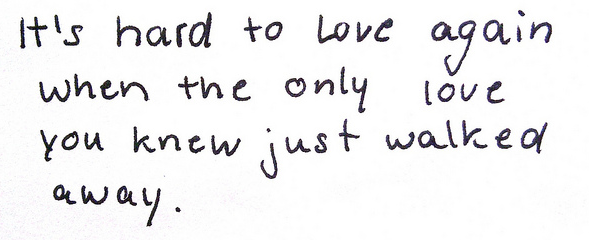 It's hard to Love again
when the only love
you knew just walked
away.